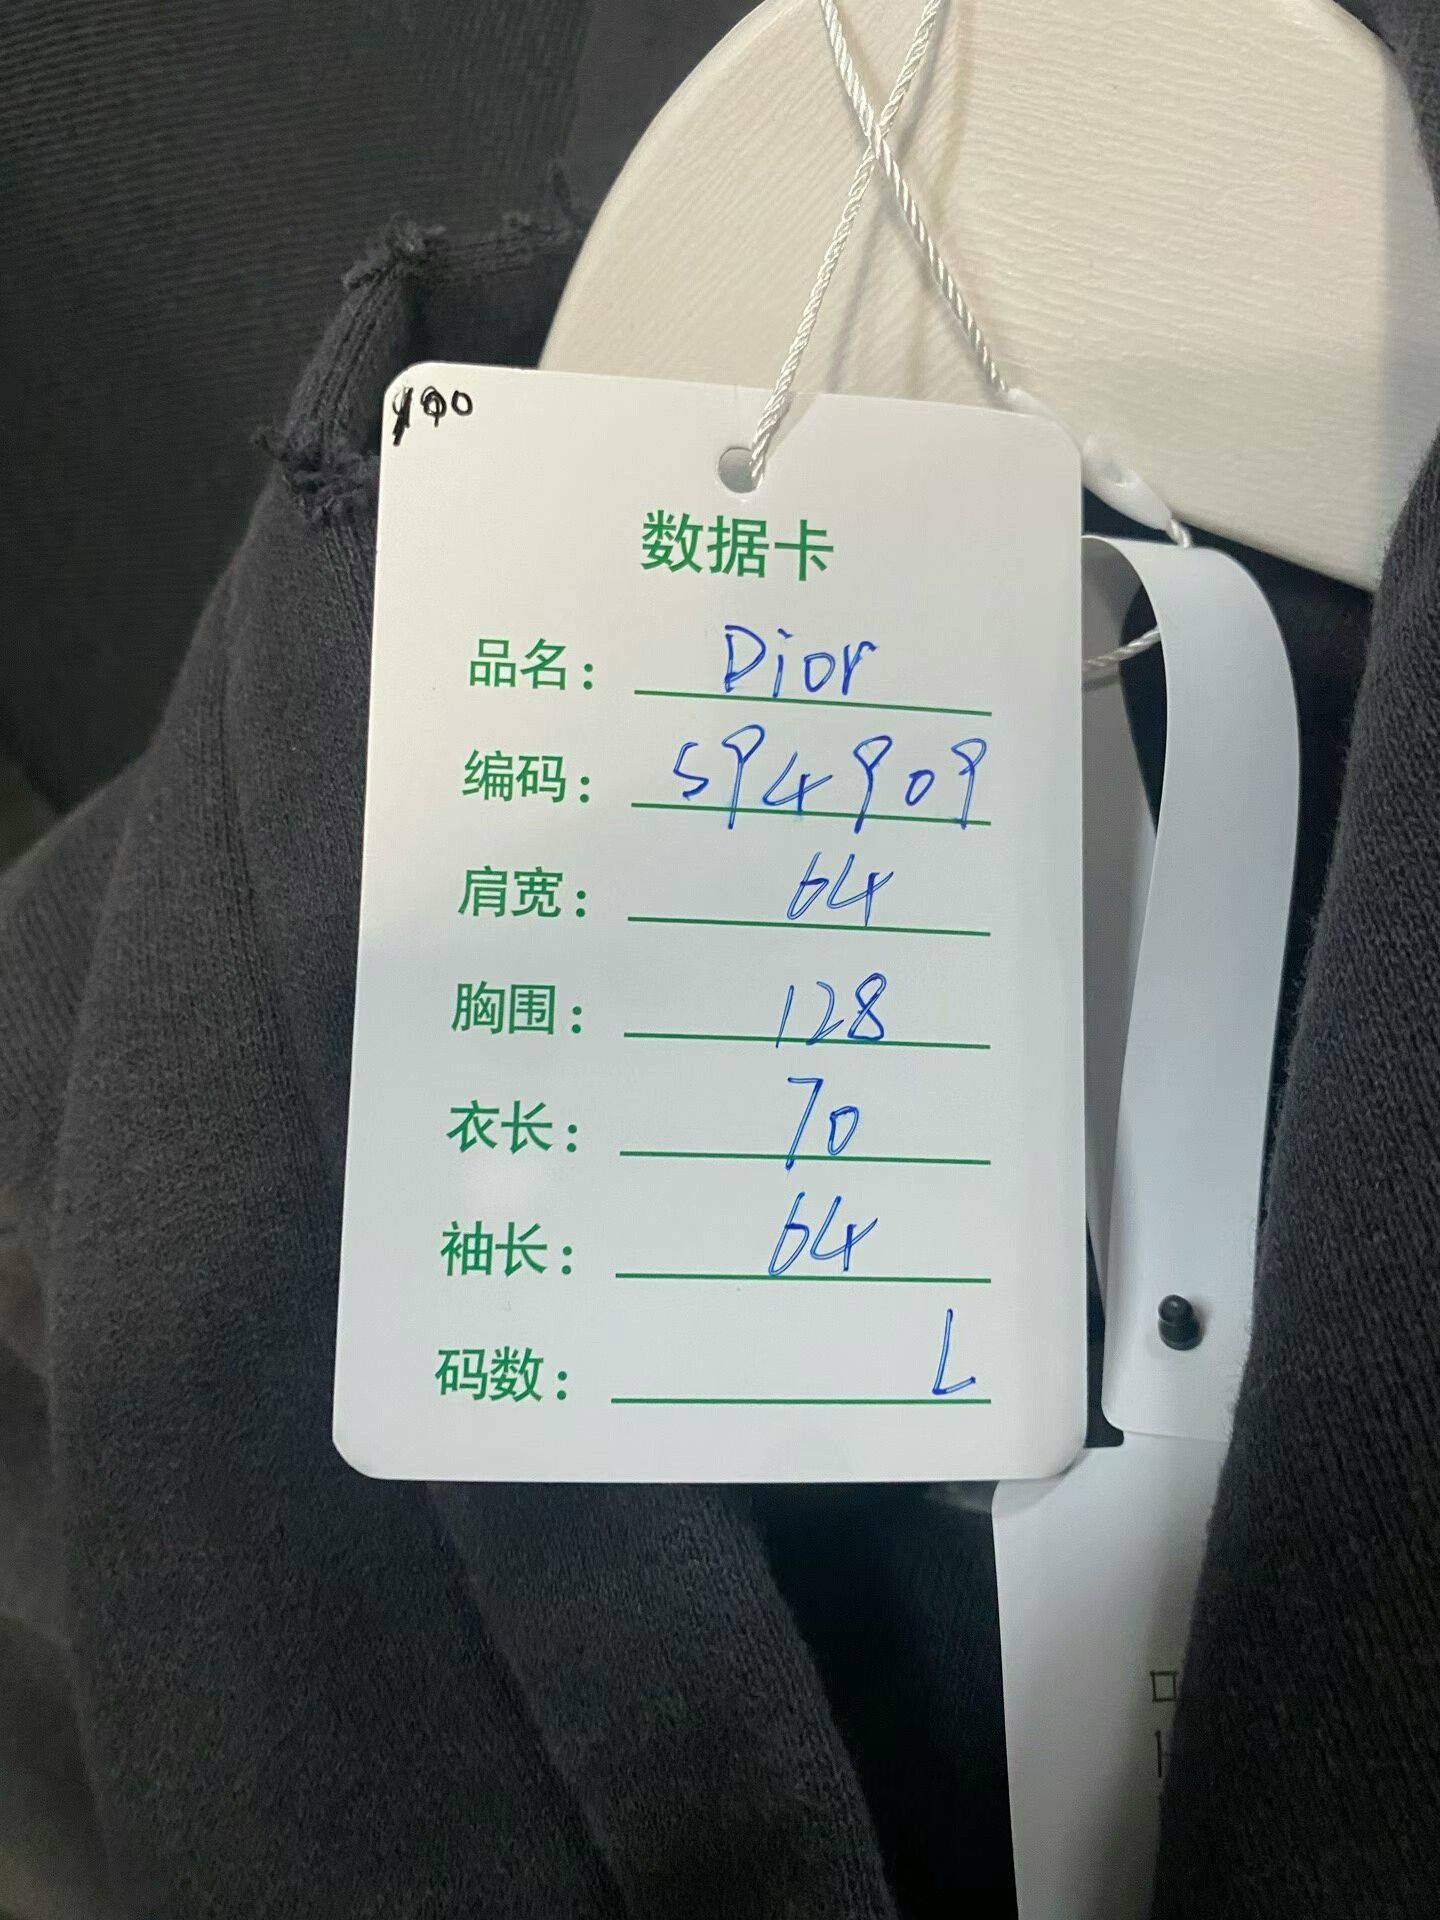 数据卡
品名: Dior
编码: 594909
肩宽: 64
胸围: 128
衣长: 70
袖长: 64
码数: L